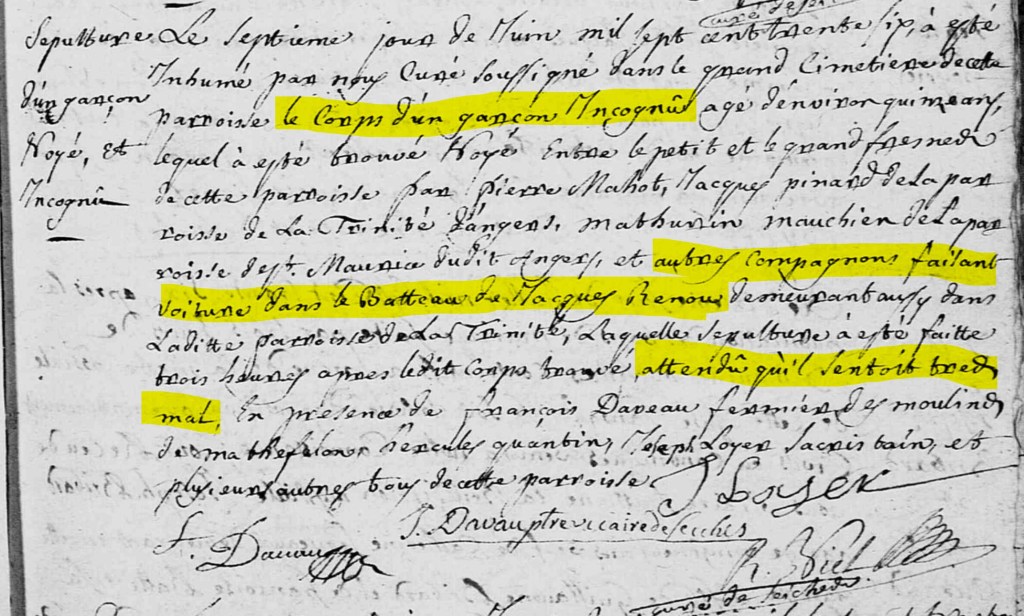 curé de sei
Sepulture Le septieme jour de Juin mil sept cent trente six, à esté
Inhumé par nous Curé soussigné dans le grand Cimetiere de cette
d'un garçon
parroisse le Corps d'un garçon Incognû agé d'environ quinze ans,
Noyé, Et lequel à esté trouvé Noyé Entre le petit et le grand fresne
Incognû de cette parroisse par pierre Mahot, Jacques pinard de La par
roisse de La Trinité d'angers, mathurin mauchien de La par
roisse de St. Maurice dudit Angers, et autres Compagnons faisant
voiture dans le Batteau de Jacques Renou, demeurant aussy dans
Laditte parroisse de La Trinité, Laquelle sepulture à esté faitte
trois heures apres ledit Corps trouvé, attendû qu'il sentoit tres
mal, En presence de françois Daveau fermier des moulins
de mathefelon, hercules quantin, Joseph Loyer sacristain, et
plusieurs autres tous de cette parroisse J Loyer
F. Davau
J. Davau ptre vicaire de seiches
R. Viel
curé de seiches